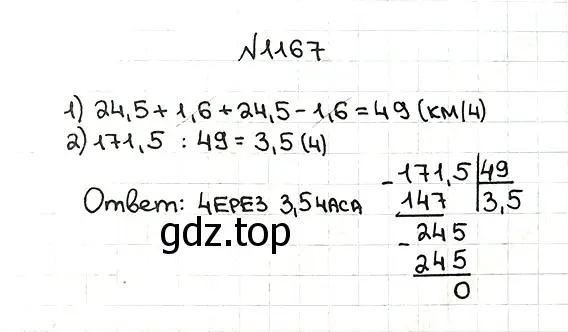 №1167
1) 24,5 + 1,6 + 24,5 - 1,6 = 49 (км/ч)
2) 171,5 : 49 = 3,5 (ч)
Ответ: ЧЕРЕЗ 3,5 ЧАСА
- 171,5 | 49
147 3,5
- 245
245
0
gdz.top